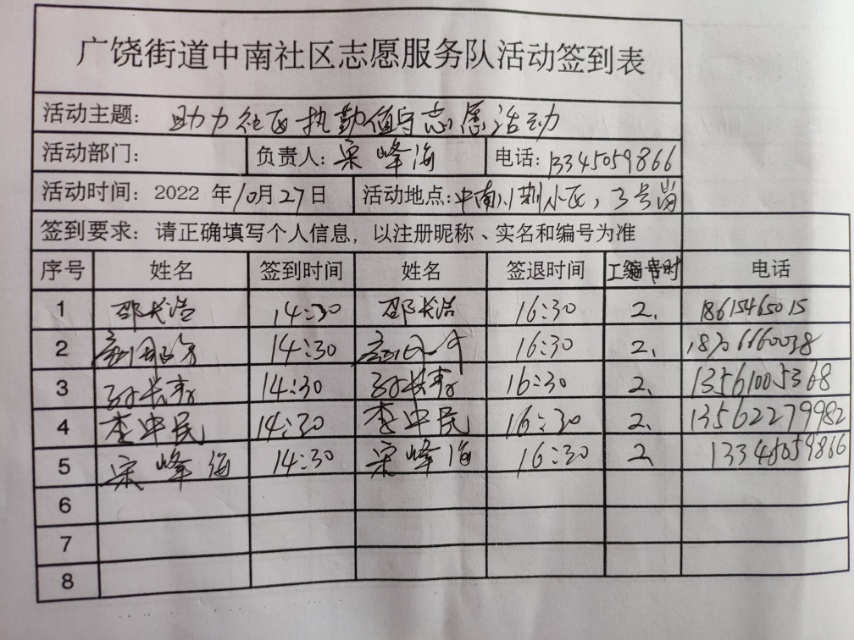 广饶街道中南社区志愿服务队活动签到表
活动主题： 助力社区执勤值守志愿活动
活动部门： 负责人：宋峰海 电话：13345059866
活动时间：2022 年10月27日 活动地点：中南小区，3号岗
签到要求：请正确填写个人信息，以注册昵称、实名和编号为准
序号 姓名 签到时间 姓名 签退时间 工时 电话
1 邵长浩 14:30 邵长浩 16:30 2、 18615465015
2 14:30 16:30 2、 18706660038
3 孙长春 14:30 孙长春 16:30 2、 13561005368
4 李中民 14:30 李中民 16:30 2、 13562279982
5 宋峰海 14:30 宋峰海 16:30 2、 13345059866
6
7
8